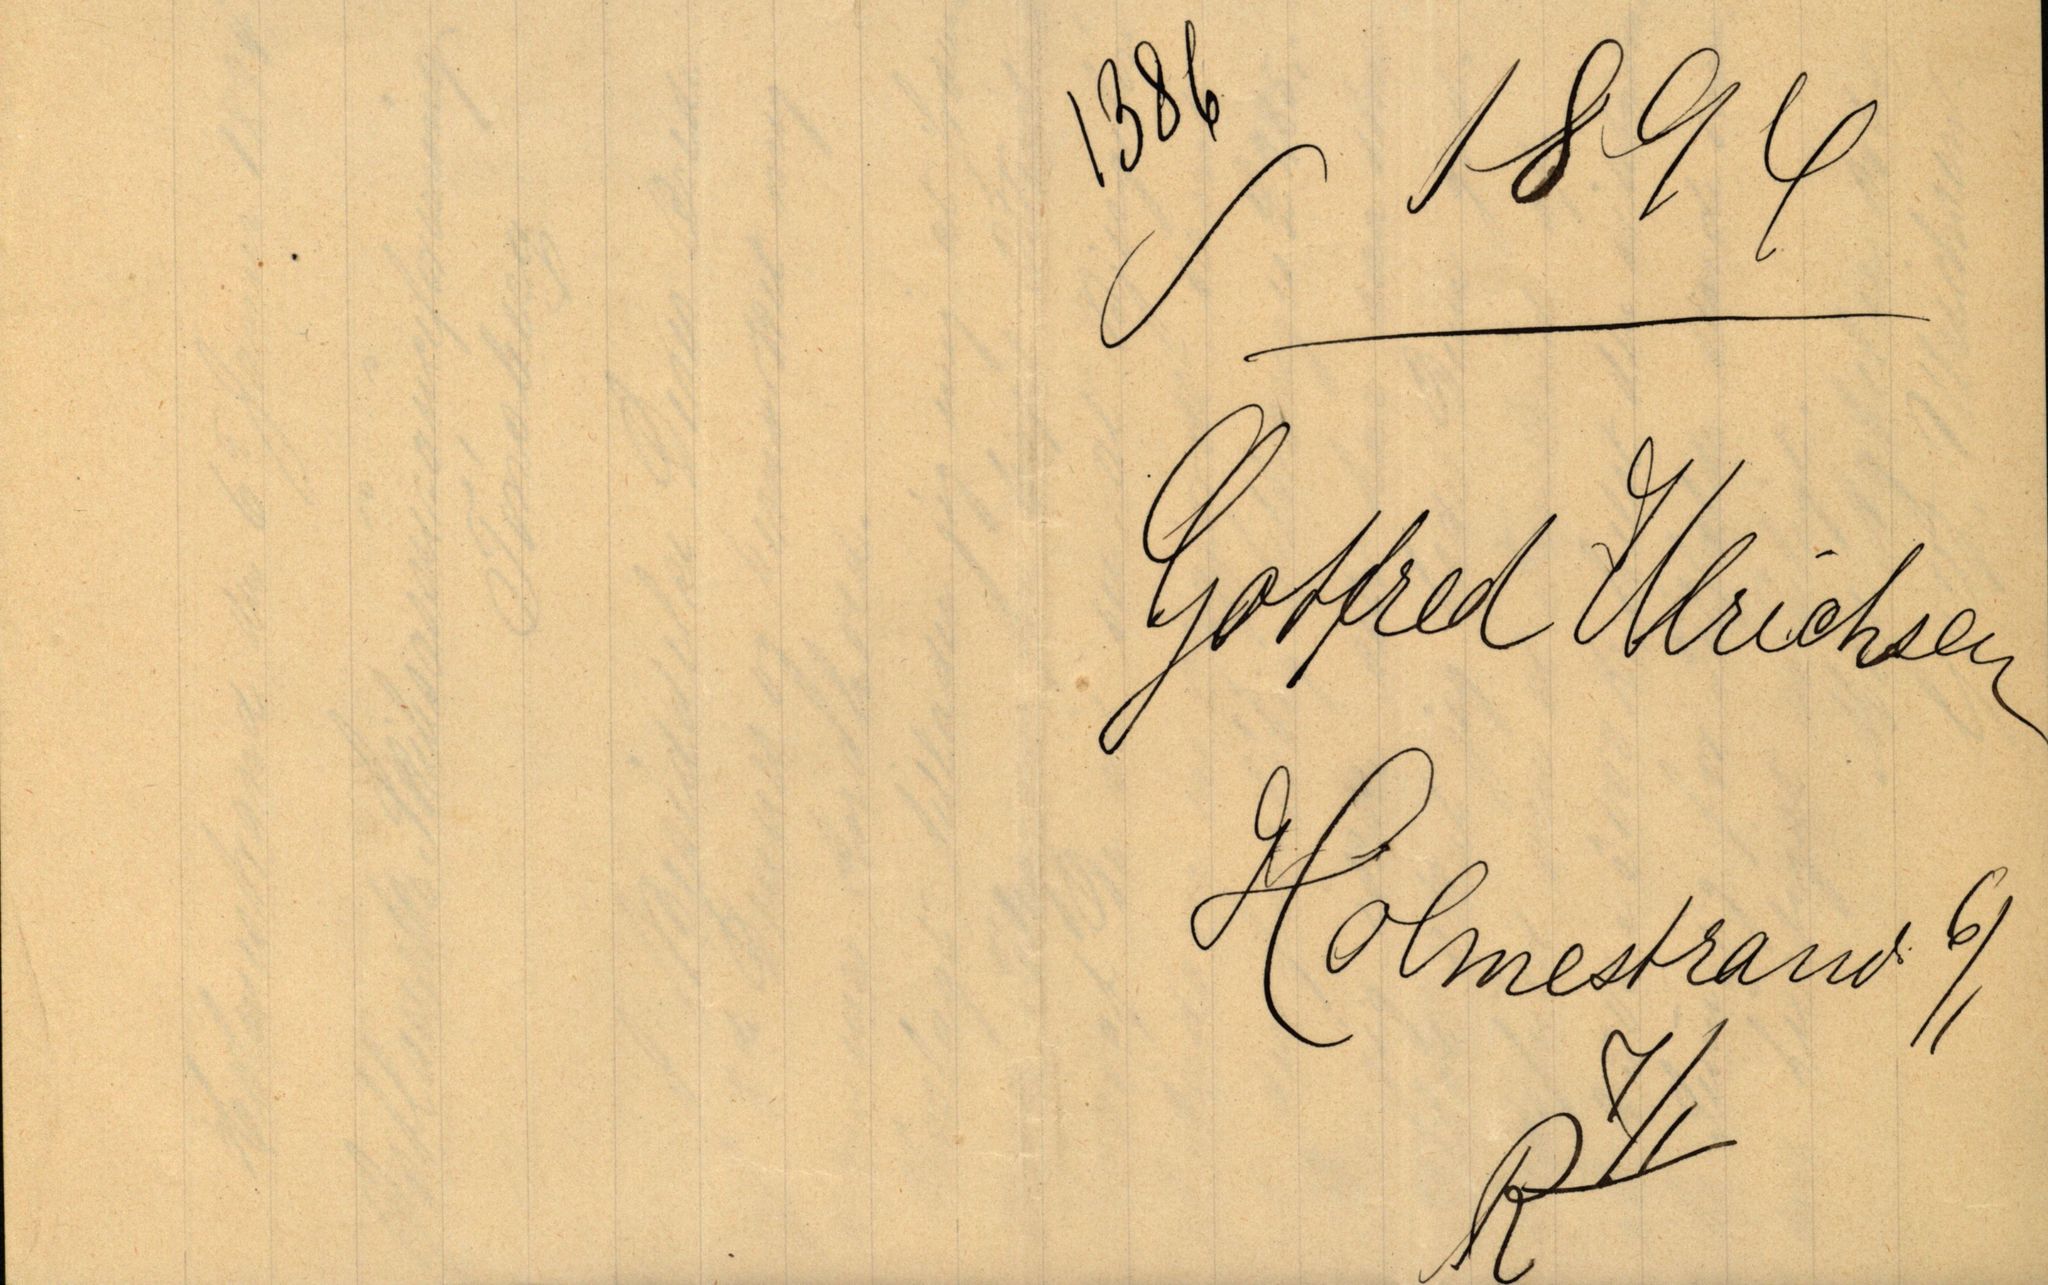 1386
1894
Gottfred Ulrichsen
Holmestrand 6/1
R 7/1